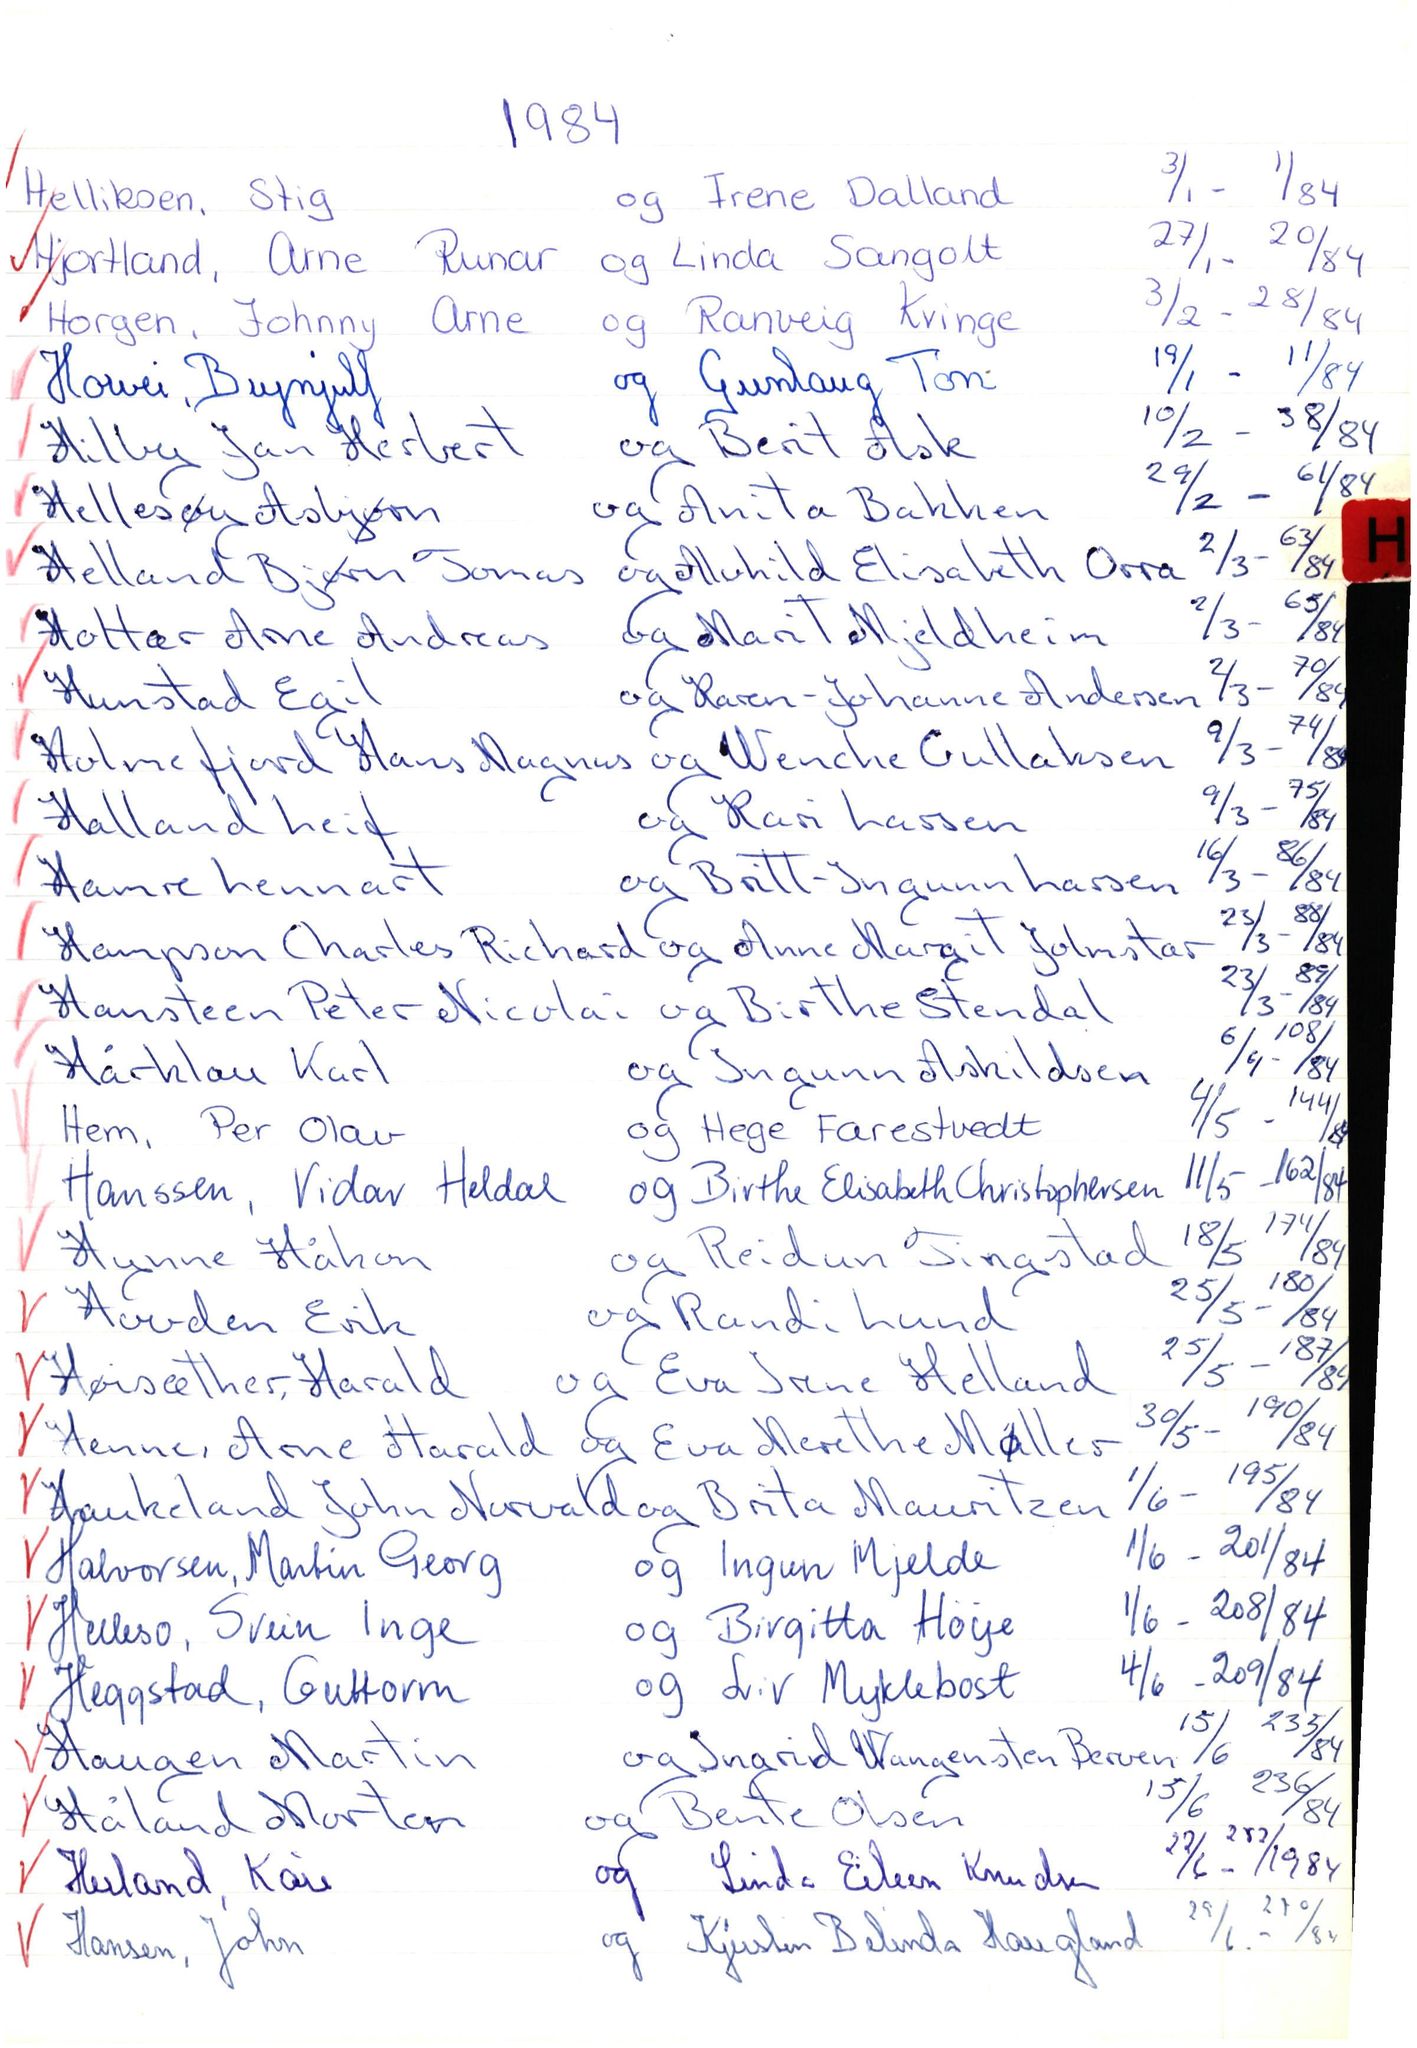 1984
Helliksen, Stig og Irene Dalland 3/1 - 1/84
Hjortland, Arne Runar og Linda Sangolt 27/1 - 20/84
Horgen, Johnny Arne og Ranveig Kvinge 3/2 - 28/84
Howei, Brynjulf og Gunlaug Toni 19/1 - 11/84
Hilby Jan Herbert og Berit Ask 10/2 - 38/84
Hellesøy Asbjørn og Anita Bakken 29/2 - 61/84
Helland Bjørn Tomas og Alvhild Elisabeth Orra 2/3 - 63/84
H
Hottær Arne Andreas og Marit Mjeldheim 2/3 - 65/84
Hunstad Egil og Karen-Johanne Andersen 2/3 - 70/84
Holmefjord Hans Magnus og Wenche Gullaksen 9/3 - 74/84
Halland Leif og Kari Larsen 9/3 - 75/84
Hamre Lennart og Britt-Ingunn Larsen 16/3 - 86/84
Hampson Charles Richard og Anne Margit Jolmstar 23/3 - 88/84
Hansteen Peter Nicolai og Birthe Stendal 23/3 - 89/84
Hårklau Karl og Ingunn Askildsen 6/4 - 108/84
Hem, Per Olav og Hege Farestvedt 4/5 - 144/84
Hanssen, Vidar Heldal og Birthe Elisabeth Christophersen 11/5 - 162/84
Hynne Håkon og Reidun Tingstad 18/5 174/84
Hovden Erik og Randi Lund 25/5 - 180/84
Høisæther, Harald og Eva Irene Helland 25/5 - 187/84
Henne, Arne Harald og Eva Merethe Møller 30/5 - 190/84
Haukeland John Norvald og Brita Mauritzen 1/6 - 195/84
Halvorsen, Martin Georg og Ingun Mjelde 1/6 - 201/84
Helleso, Svein Inge og Birgitta Höije 1/6 - 208/84
Heggstad, Guttorm og Liv Myklebost 4/6 - 209/84
Haugen Martin og Ingrid Wangensten Berven 15/6 235/84
Håland Morten og Bente Olsen 15/6 236/84
Herland, Kåre og Linda Eileen Knudsen 22/6 - /1984
Hansen, John og Kjerstin Belinda Haugland 29/6 - /84